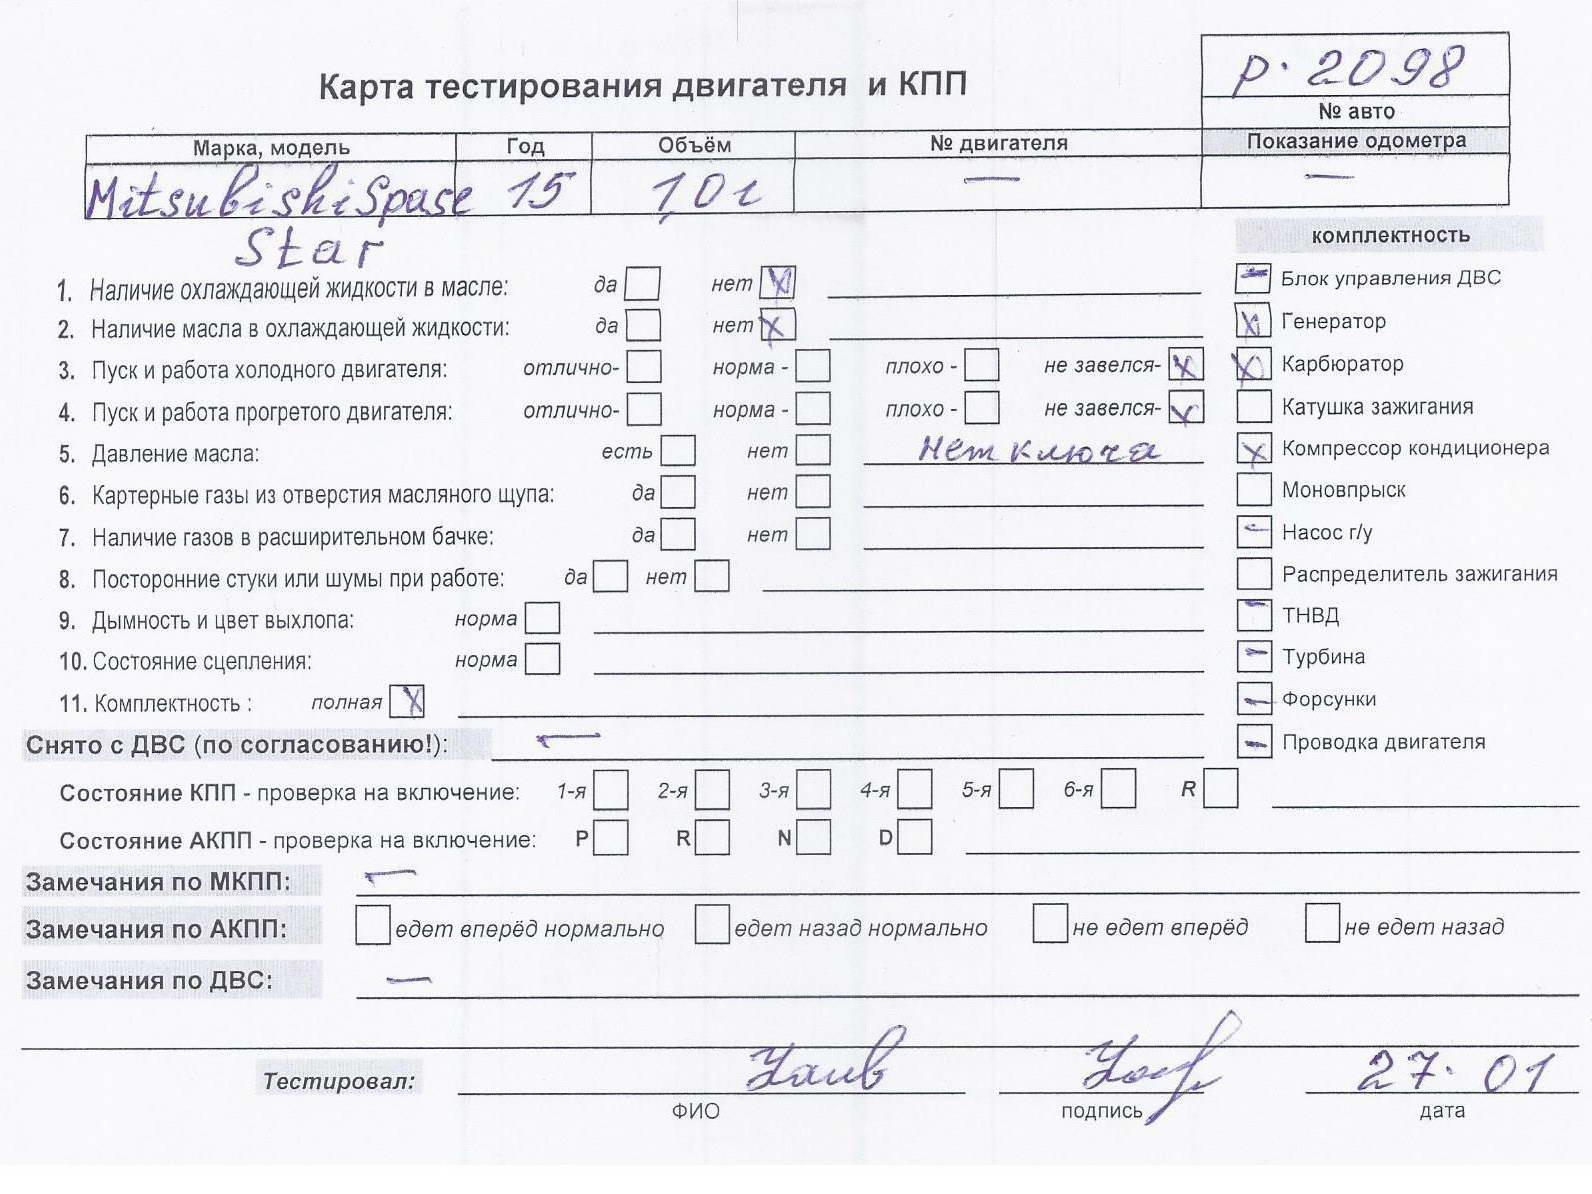 р. 2098
Карта тестирования двигателя и КПП
№ авто
Марка, модель Год Объём № двигателя Показание одометра
Mitsubishi Spase 15 — —
Star
комплектность
1. Наличие охлаждающей жидкости в масле: да нет X
Блок управления ДВС
2. Наличие масла в охлаждающей жидкости: да нет X
X Генератор
3. Пуск и работа холодного двигателя: отлично- норма - плохо - не завелся- X
X Карбюратор
4. Пуск и работа прогретого двигателя: отлично- норма - плохо - не завелся- X
Катушка зажигания
5. Давление масла: есть нет Нет ключа
X Компрессор кондиционера
6. Картерные газы из отверстия масляного щупа: да нет
Моновпрыск
7. Наличие газов в расширительном бачке: да нет
– Насос г/у
8. Посторонние стуки или шумы при работе: да нет
Распределитель зажигания
9. Дымность и цвет выхлопа: норма
– ТНВД
10. Состояние сцепления: норма
– Турбина
11. Комплектность : полная X
– Форсунки
Снято с ДВС (по согласованию!): —
– Проводка двигателя
Состояние КПП - проверка на включение: 1-я 2-я 3-я 4-я 5-я 6-я R
Состояние АКПП - проверка на включение: P R N D
Замечания по МКПП: —
Замечания по АКПП: едет вперёд нормально едет назад нормально не едет вперёд не едет назад
Замечания по ДВС: —
Тестировал: 27. 01
ФИО подпись дата